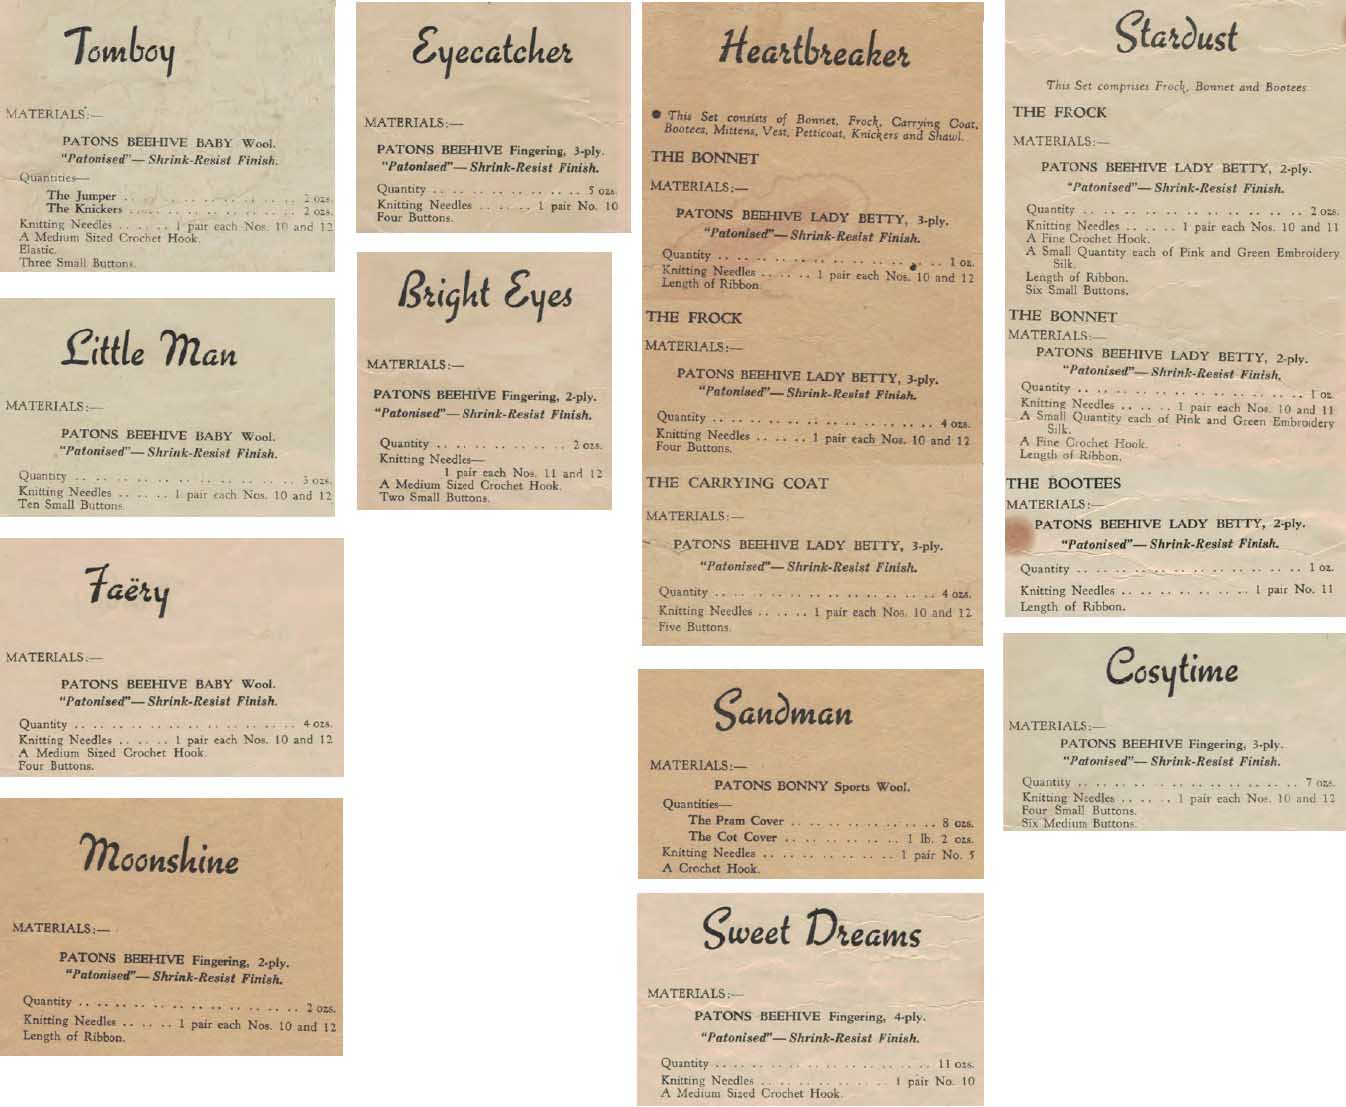 Tomboy
MATERIALS:—
PATONS BEEHIVE BABY Wool.
"Patonised"—Shrink-Resist Finish.
Quantities—
The Jumper .. .. .. .. .. .. .. 2 ozs.
The Knickers .. .. .. .. .. .. .. 2 ozs.
Knitting Needles .. .. .. 1 pair each Nos. 10 and 12
A Medium Sized Crochet Hook.
Elastic.
Three Small Buttons.
Little Man
MATERIALS:—
PATONS BEEHIVE BABY Wool.
"Patonised"—Shrink-Resist Finish.
Quantity .. .. .. .. .. .. .. .. 3 ozs.
Knitting Needles .. .. .. 1 pair each Nos. 10 and 12
Ten Small Buttons.
Faëry
MATERIALS:—
PATONS BEEHIVE BABY Wool.
"Patonised"—Shrink-Resist Finish.
Quantity .. .. .. .. .. .. .. .. 4 ozs.
Knitting Needles .. .. .. 1 pair each Nos. 10 and 12
A Medium Sized Crochet Hook.
Four Buttons.
Moonshine
MATERIALS:—
PATONS BEEHIVE Fingering, 2-ply.
"Patonised"—Shrink-Resist Finish.
Quantity .. .. .. .. .. .. .. .. 2 ozs.
Knitting Needles .. .. .. 1 pair each Nos. 10 and 12
Length of Ribbon.
Eyecatcher
MATERIALS:—
PATONS BEEHIVE Fingering, 3-ply.
"Patonised"—Shrink-Resist Finish.
Quantity .. .. .. .. .. .. .. 5 ozs.
Knitting Needles .. .. .. 1 pair No. 10
Four Buttons.
Bright Eyes
MATERIALS:—
PATONS BEEHIVE Fingering, 2-ply.
"Patonised"—Shrink-Resist Finish.
Quantity .. .. .. .. .. .. 2 ozs.
Knitting Needles—
1 pair each Nos. 11 and 12
A Medium Sized Crochet Hook.
Two Small Buttons.
Heartbreaker
● This Set consists of Bonnet, Frock, Carrying Coat,
Bootees, Mittens, Vest, Petticoat, Knickers and Shawl.
THE BONNET
MATERIALS:—
PATONS BEEHIVE LADY BETTY, 3-ply.
"Patonised"—Shrink-Resist Finish.
Quantity .. .. .. .. .. .. .. .. 1 oz.
Knitting Needles .. .. .. 1 pair each Nos. 10 and 12
Length of Ribbon.
THE FROCK
MATERIALS:—
PATONS BEEHIVE LADY BETTY, 3-ply.
"Patonised"—Shrink-Resist Finish.
Quantity .. .. .. .. .. .. .. .. 4 ozs.
Knitting Needles .. .. .. 1 pair each Nos. 10 and 12
Four Buttons.
THE CARRYING COAT
MATERIALS:—
PATONS BEEHIVE LADY BETTY, 3-ply.
"Patonised"—Shrink-Resist Finish.
Quantity .. .. .. .. .. .. .. .. 4 ozs.
Knitting Needles .. .. .. 1 pair each Nos. 10 and 12
Five Buttons.
Sandman
MATERIALS:—
PATONS BONNY Sports Wool.
Quantities—
The Pram Cover .. .. .. .. .. .. 8 ozs.
The Cot Cover .. .. .. .. .. 1 lb. 2 ozs.
Knitting Needles .. .. .. .. .. 1 pair No. 5
A Crochet Hook.
Sweet Dreams
MATERIALS:—
PATONS BEEHIVE Fingering, 4-ply.
"Patonised"—Shrink-Resist Finish.
Quantity .. .. .. .. .. .. .. .. 11 ozs.
Knitting Needles .. .. .. .. .. 1 pair No. 10
A Medium Sized Crochet Hook.
Stardust
This Set comprises Frock, Bonnet and Bootees
THE FROCK
MATERIALS:—
PATONS BEEHIVE LADY BETTY, 2-ply.
"Patonised"—Shrink-Resist Finish.
Quantity .. .. .. .. .. .. .. .. 2 ozs.
Knitting Needles .. .. .. 1 pair each Nos. 10 and 11
A Fine Crochet Hook.
A Small Quantity each of Pink and Green Embroidery
Silk.
Length of Ribbon.
Six Small Buttons.
THE BONNET
MATERIALS:—
PATONS BEEHIVE LADY BETTY, 2-ply.
"Patonised"—Shrink-Resist Finish.
Quantity .. .. .. .. .. .. .. .. 1 oz.
Knitting Needles .. .. .. 1 pair each Nos. 10 and 11
A Small Quantity each of Pink and Green Embroidery
Silk.
A Fine Crochet Hook.
Length of Ribbon.
THE BOOTEES
MATERIALS:—
PATONS BEEHIVE LADY BETTY, 2-ply.
"Patonised"—Shrink-Resist Finish.
Quantity .. .. .. .. .. .. .. .. 1 oz.
Knitting Needles .. .. .. .. .. 1 pair No. 11
Length of Ribbon.
Cosytime
MATERIALS:—
PATONS BEEHIVE Fingering, 3-ply.
"Patonised"—Shrink-Resist Finish.
Quantity .. .. .. .. .. .. .. .. 7 ozs.
Knitting Needles .. .. .. 1 pair each Nos. 10 and 12
Four Small Buttons.
Six Medium Buttons.